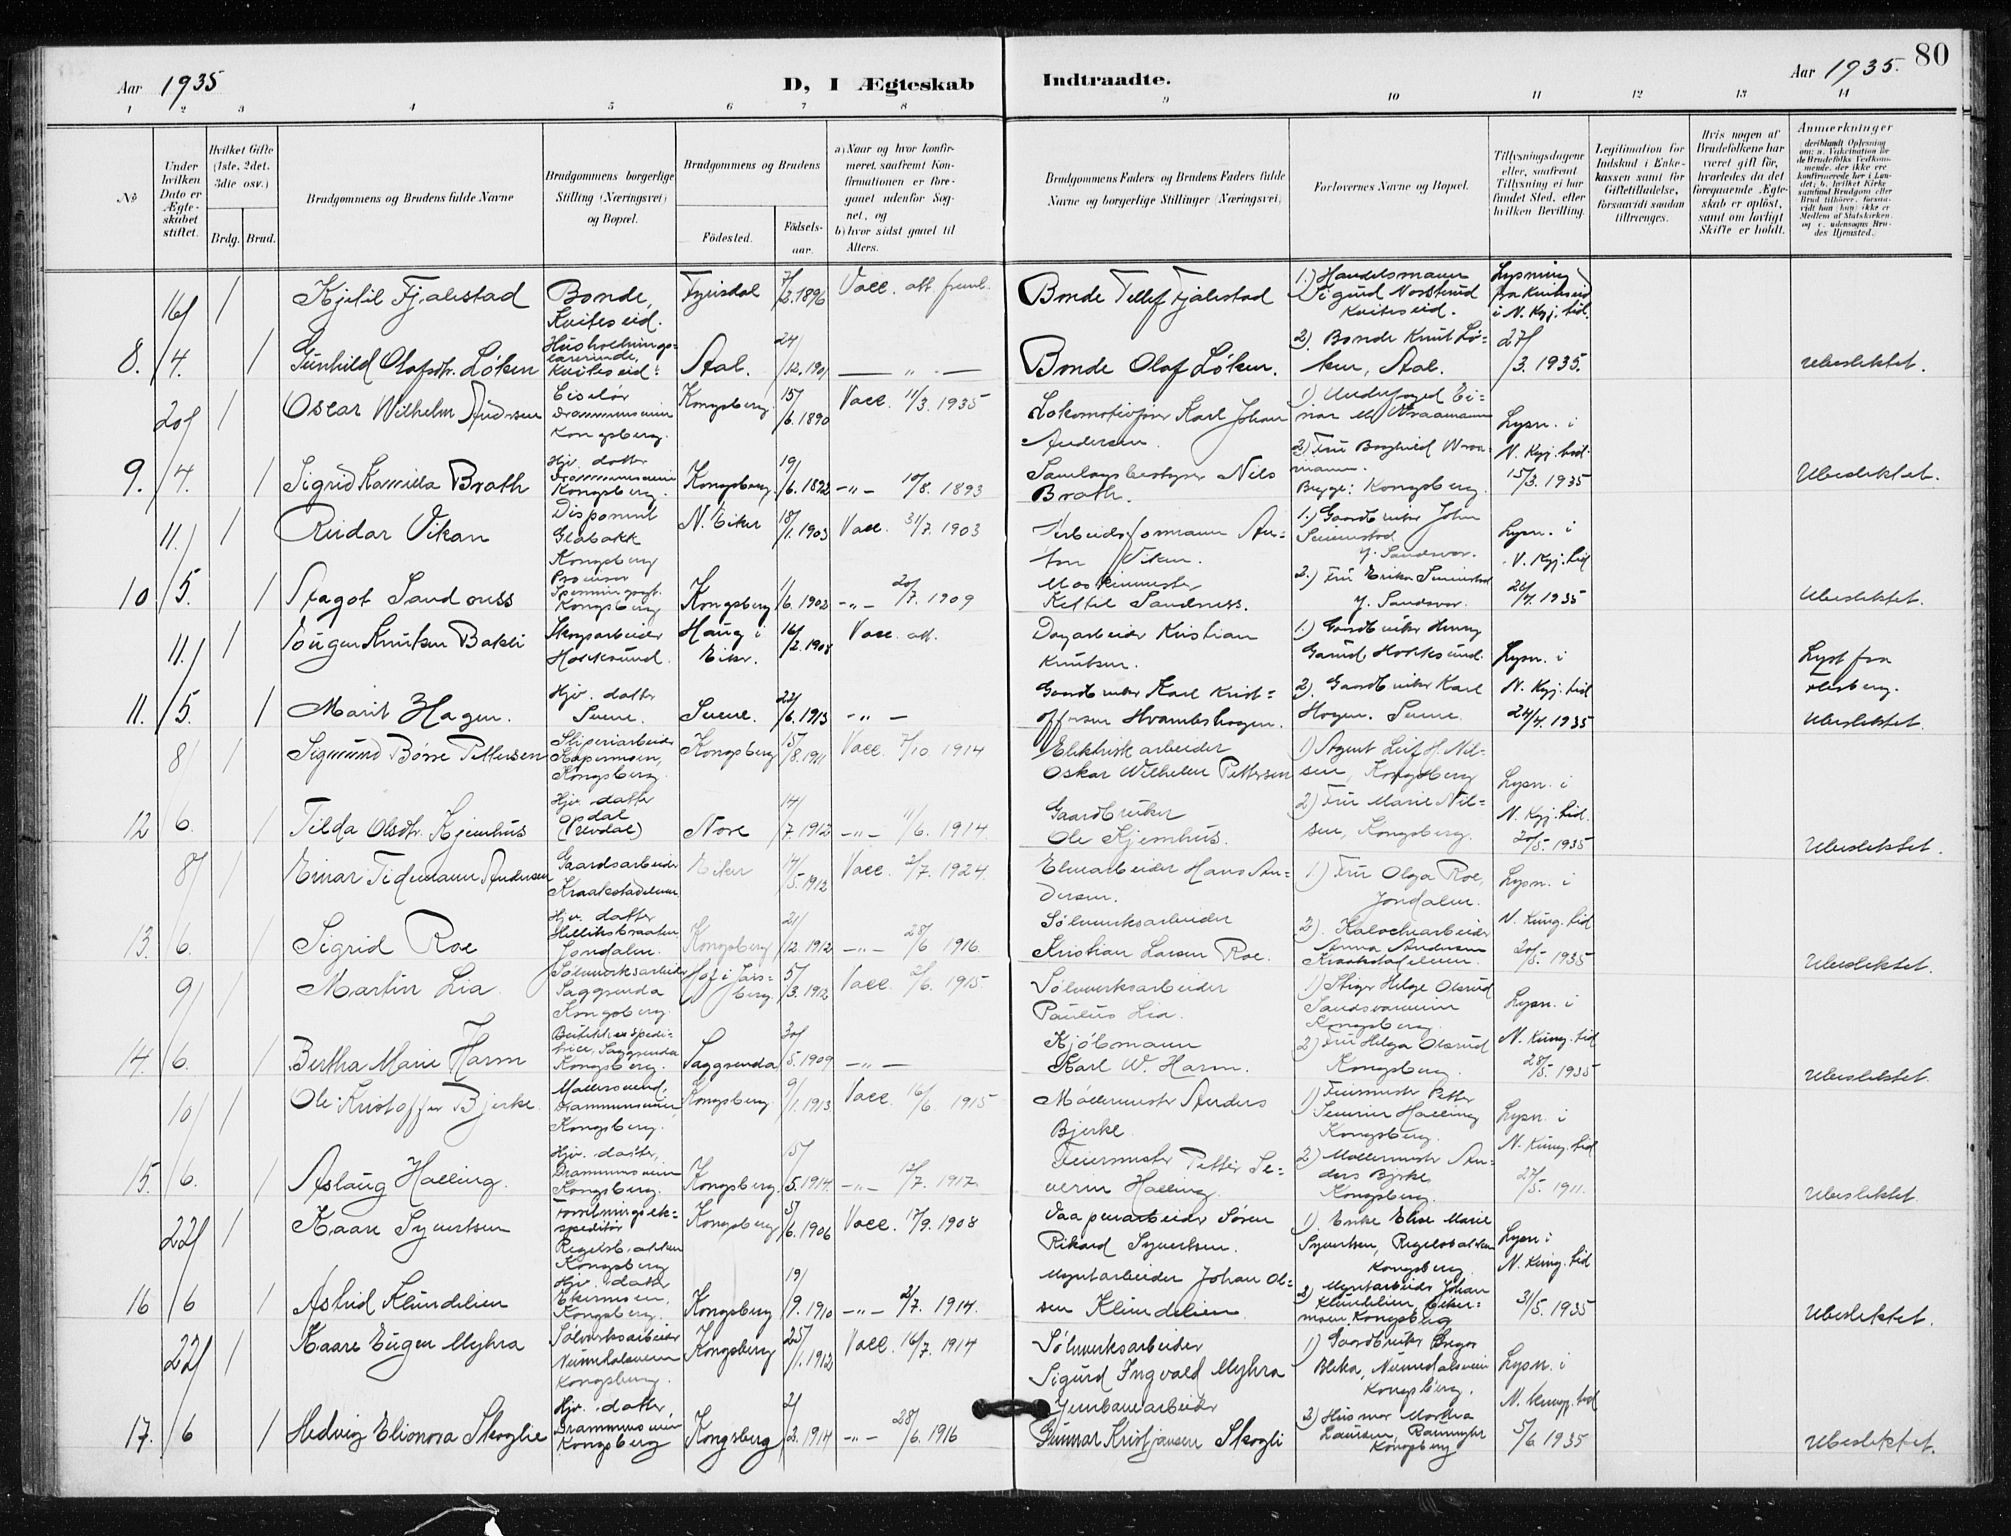 80
Aar 1935
D, I Ægteskab Indtraadte.
Aar 1935.
1 2 3 4 5 6 7 8 9 10 11 12 13 14
No
Under hvilken Dato er Ægteskabet stiftet.
Hvilket Gifte (1ste, 2det, 3die osv.)
Brdg. Brud.
Brudgommens og Brudens fulde Navne
Brudgommens borgerlige Stilling (Næringsvei) og Bopæl.
Brudgommens og Brudens
Födested.
Födselsaar.
a) Naar og hvor konfirmeret, saafremt Konfirmationen er foregaaet udenfor Sognet, og
b) hvor sidst gaaet til Alters.
Brudgommens Faders og Brudens Faders fulde Navne og borgerlige Stillinger (Næringsvei)
Forlovernes Navne og Bopæl.
Tillysningsdagene eller, saafremt Tillysning ei har fundet Sted, efter hvilken Bevilling.
Legitimation for Indskud i Enkekassen samt for Giftetilladelse, forsaavidt saadan tiltrænges.
Hvis nogen af Brudefolkene har været gift för, hvorledes da det foregaaende Ægteskab er oplöst, samt om lovligt Skifte er holdt.
Anmærkninger
16/ 1 Kjetil Fjalestad Bonde, Kviteseid. Fyrisdal 7/2.1896 Vacc. att. freml. Bonde Tellef Fjalestad 1.) Handelsmann Sigurd Nordbrud Kviteseid. Lysning fra Kviteseid i N. Kgj. tid.
8. 4. 1 Gunhild Olafsdtr. Løken Husholdningslærerinde, Kviteseid. Aal. 24/12.1901 — " — Bonde Olaf Løken. 2) Bonde Knut Løken, Aal. 27/3.1935. Ubeslektet.
20/ 1 Oscar Wilhelm Andersen Ciselør Drammensveien Kongsberg. Kongsberg 15/6.1890 Vacc. 11/3.1935 Lokomotivfører Karl Johan Andersen. 1) Underfoged Einar M. Wraamann Lysn. i
9. 4. 1 Sigrid Kamilla Brath Hjv. datter Drammensveien Kongsberg. Kongsberg. 19/6.1892 -"- 10/8.1893 Samlagsbestyrer Nils Brath. 2) Fru Borghild Wraamann. Begge: Kongsberg. N. Kgj. tid. 15/3.1935 Ubeslektet.
11./ 1 Reidar Vikan Disponent Glabakk Kongsberg N. Eiker 18/1.1903 Vacc. 31/7.1903 Arbeidsformann Anton Viken. 1.) Gaardbruker John Lysn. i
10 5. 1 Aagot Sandness Kongsberg Kongsberg 1/6.1902 -"- 20/7.1909 Maskinmester Kettil Sandness. 2.) Fru Y. Sandsvær. N. Kgj. tid 26/4.1935 Ubeslektet.
11./ 1 Eugen Knutsen Bakli Skogsarbeider Hokksund. Haug i Eiker. 16/2.1908 Vacc. att. Dagarbeider Kristian Knutsen. 1.) Gaardbruker Henry Garud, Hokksund. Lysn. i Lyst fra Flesberg.
11. 5. 1 Marit Hagen. Hjv. datter Svene. Svene. 22/6.1913 -"- Gaardbruker Karl Kristoffersen Hvambshagen. 2). Gaardbruker Karl Hagen. Svene. N. Kgj. tid 24/4.1935 Ubeslektet.
8/ 1 Sigmund Børre Pettersen Sliperiarbeider Kapermoen, Kongsberg. Kongsberg 15/8.1911 Vacc. 7/10 1914 Elektrisk arbeider Oskar Wilhelm Pettersen 1) Agent Leif H. Nilsen, Kongsberg Lysn. i
12 6. 1 Tilda Olsdtr. Kjemhus Hjv. datter Opdal (Numedal) Nore 14/7.1912 -"- 11/6.1914. Gaardbruker Ole Kjemhus. 2) Fru Marie Nilsen, Kongsberg. N. Kgj. tid. 20/5.1935 Ubeslektet.
8/ 1 Einar Tidemann Andersen Gaardsarbeider Kraakstadelven Eiker 14/5.1912 Vacc. 2/7.1924 Elvearbeider Hans Andersen. 1) Fru Olga Roe, Jondalen. Lysn. i
13. 6. 1 Sigrid Roe Hjv. datter Helliksbraaten Jondalen. Kongsberg 21/12.1912 -"- 28/6 1916. Sølvverksarbeider Kristian Larsen Roe. 2). Anna Andersen Kraakstadelven. N. Kung. tid 20/5.1935 Ubeslektet.
9/ 1 Martin Lia. Sølvverksarbeider Saggrenda Kongsberg. Hof i Jarlsberg 5/3.1912 Vacc. 2/6.1915. Sølvverksarbeider Paulus Lia. 1) Stiger Helge Olsrud Sandsværveien Kongsberg. Lysn. i
14. 6. 1 Bertha Marie Harm Butikkexpeditrice, Saggrenda Kongsberg. Saggrenda 30/5.1909 -"- Kjøbmann Karl W. Harm. 2) Fru Helga Olsrud Kongsberg. N. Kung. tid 28/5.1935 Ubeslektet.
10/ 1 Ole Kristoffer Bjerke. Møllersvend, Drammensveien, Kongsberg. Kongsberg 9/1.1913 Vacc. 16/6 1915 Møllermester Anders Bjerke. 1) Feiermester Petter Severin Halling Kongsberg. Lysn. i
15. 6. 1 Aslaug Halling. Hjv. datter, Drammensveien Kongsberg. Kongsberg. 15/5.1914. -"- 12/7.1917. Feiermester Petter Severin Halling. 2) Møllermester Anders Bjerke Kongsberg. N. Kung. tid 27/5.1911. Ubeslektet.
22/ 1 Kaare Syvertsen Forretningsekspeditør Kongsberg Kongsberg 5/6.1906 Vacc. 17/9.1908 Vaapenarbeider Søren Rikard Syvertsen. 1). Enke Elise Marie Syvertsen, Kongsberg. Lysn. i
16 6 1 Astrid Klundelien Hjv. datter Ekermoen, Kongsberg. Kongsberg 19/9.1910 -"- 2/7.1914. Myntarbeider Johan Olsen Klundelien. 2) Myntarbeider Johan Klundelien Ekermoen, Kongsberg N. Kung. tid 31/5.1935 Ubeslektet.
22/ 1 Kaare Eugen Myhra Sølvverksarbeider Numedalsveien Kongsberg. Kongsberg 25/1.1912 Vacc. 16/7.1914 Sølvverksarbeider Sigurd Ingvald Myhra 1) Gaardbruker Numedalsveien Kongsberg. Lysn. i
17. 6 1 Hedvig Elionora Skoglie Hjv. datter, Drammensveien Kongsberg Kongsberg 2/2.1914 -"- 28/6.1916 Jernbanearbeider Gunnar Kristjansen Skogli 2) Husmor Martha Laursen, Kongsberg N. Kongsb. tid 5/6.1935 Ubeslektet.